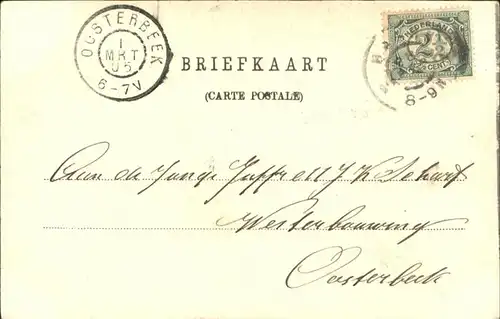 OOSTERBEEK
1
MRT
05
6-7V
BRIEFKAART
(CARTE POSTALE)
NEDERLAND
2½
CENT
8-9
Aan de Jonge Juffr
Westerbouwing
Oosterbeek